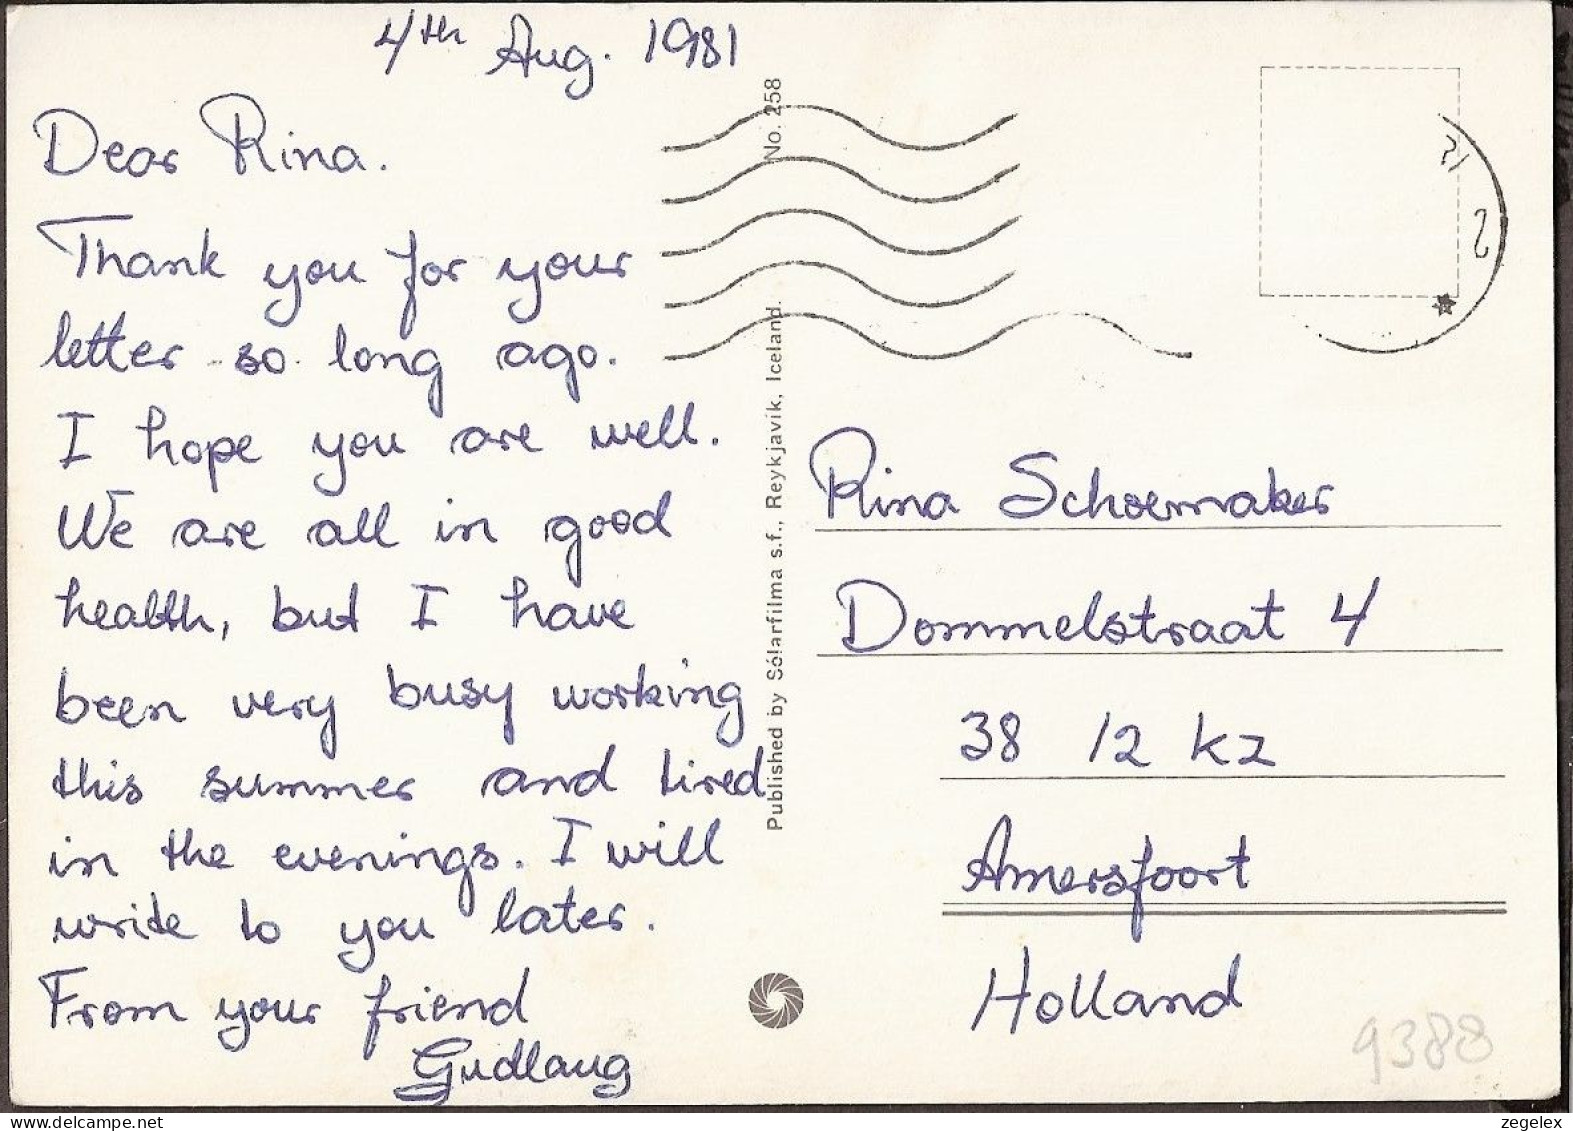 4th Aug. 1981
Dear Rina.
Thank you for your
letter so long ago.
I hope you are well.
We are all in good
health, but I have
been very busy working
this summer and tired
in the evenings. I will
write to you later.
From your friend
Gudlaug
No. 258
Published by Sólarfilma s.f., Reykjavik, Iceland.
Rina Schoemaker
Dommelstraat 4
38 12 KZ
Amersfoort
Holland
9388
zegelex